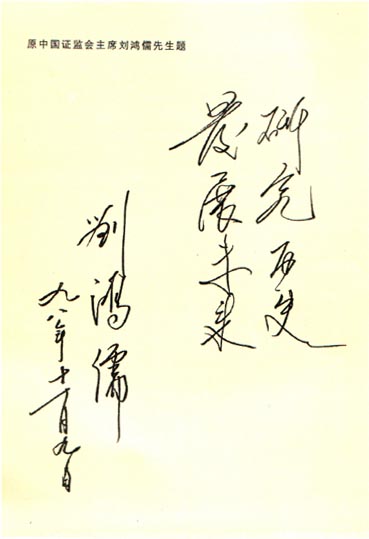 原中国证监会主席刘鸿儒先生题
研究历史
發展未来
刘鸿儒
九八年十一月九日